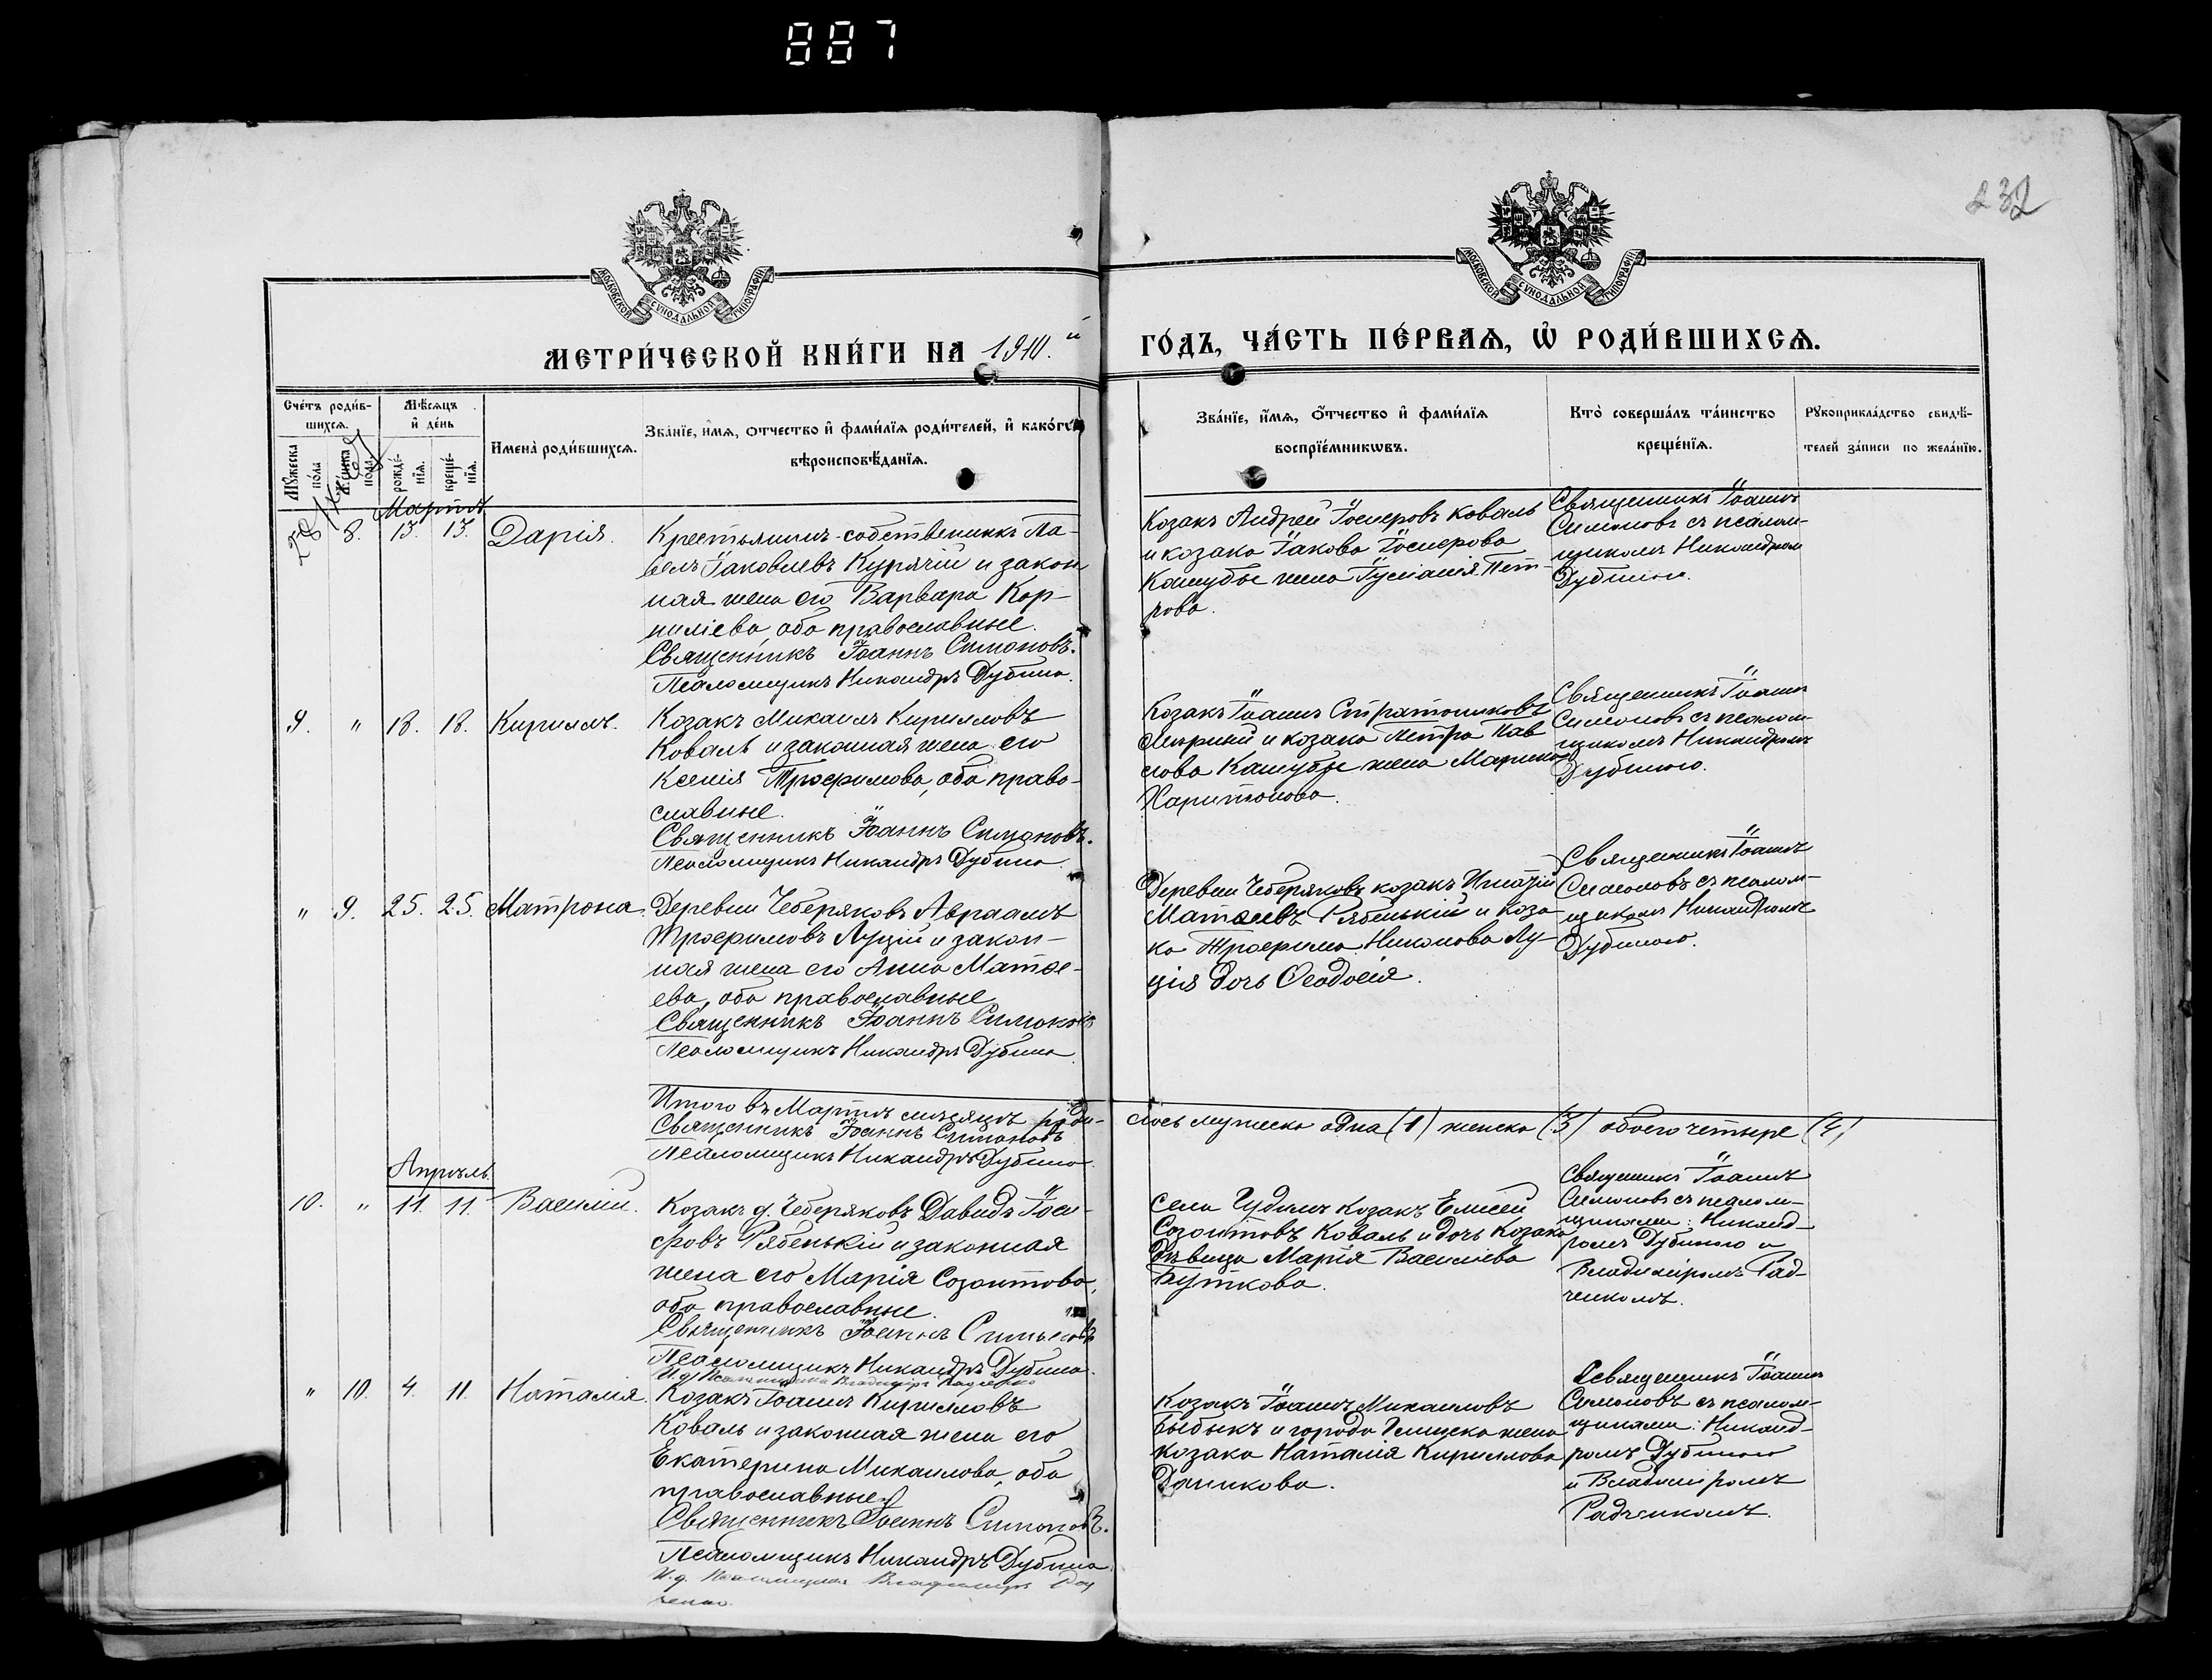 887
232
МОСКОВСКОЙ СУНОДАЛЬНОЙ ТИПОГРАФІИ
МОСКОВСКОЙ СУНОДАЛЬНОЙ ТИПОГРАФІИ
МЕТРИ́ЧЕСКОЙ КНИ́ГИ НА 1910.й
ГО́ДЪ, ЧА́СТЬ ПЕ́РВАѦ, Ѡ҆ РОДИ́ВШИХСѦ.
Сче́тъ роди́в-
шихсѧ.
Мѣ́сѧцъ
и҆ де́нь
Мꙋжеска по́ла
Же́нска пола
рожде́-
нїѧ.
креще́-
нїѧ.
Имена̀ роди́вшихсѧ.
Зва́нїе, и҆́мѧ, ѻтчество и҆ фами́лїѧ роди́телей, и҆ како́гѡ
вѣроисповѣ́данїѧ.
Зва́нїе, и҆́мѧ, ѻ҆́тчество и҆ фами́лїѧ
воспрїе́мникѡвъ.
Кто̀ соверша́лъ та́инство
креще́нїѧ.
Рꙋкоприкла́дство свидѣ́-
телей за́писи по жела́нїю.
Мартъ
8. 13. 13. Дарія.
Крестьянинъ-собственникъ Па-
велъ Іаковлевъ Курячій и закон
ная жена его Варвара Кор-
ниліева, оба православные.
Священникъ Іоаннъ Симоновъ.
Псаломщикъ Никандръ Дубина.
Козакъ Андрей Іосифовъ Коваль
и козака Іакова Іосифова
Кашубы жена Іуліанія Пет-
рова.
Священникъ Іоаннъ
Симоновъ съ псалом-
щикомъ Никандромъ
Дубиною.
9. " 18. 18. Кириллъ.
Козакъ Михаилъ Кирилловъ
Коваль и законная жена его
Ксенія Трофимова, оба право-
славные.
Священникъ Іоаннъ Симоновъ.
Псаломщикъ Никандръ Дубина.
Козакъ Іоаннъ Стратониковъ
и козака Петра Пав
лова Кашубы жена Марина
Харитонова.
Священникъ Іоаннъ
Симоновъ съ псалом-
щикомъ Никандромъ
Дубиною.
" 9. 25. 25. Матрона.
Деревни Чеберяковъ Авраамъ
Трофимовъ Луцій и закон-
ная жена его Анна Матѳе-
ева, оба православные
Священникъ Іоаннъ Симоновъ
Псаломщикъ Никандръ Дубина.
Деревни Чеберяковъ козакъ Игнатій
Матѳеевъ Рябенькій и коза
ка Трофима Никонова Лу-
ція дочь Ѳеодосія.
Священникъ Іоаннъ
Симоновъ съ псалом-
щикомъ Никандромъ
Дубиною.
Итого въ Мартѣ мѣсяцѣ роди-
лось мужеска одна (1) женска (3) обоего четыре (4)
Священникъ Іоаннъ Симоновъ
Псаломщикъ Никандръ Дубина.
Апрѣль.
10. " 11. 11. Василій.
Козакъ д. Чеберяковъ Давидъ Іоси-
фовъ Рябенькій и законная
жена его Марія Созонтова,
оба православные.
Священникъ Іоаннъ Симоновъ
Псаломщикъ Никандръ Дубина.
И.д. Псаломщика Владиміръ Радченко
Села Гудимъ козакъ Елисей
Созонтовъ Коваль и дочь козака
дѣвица Марія Василіева
Буткова.
Священникъ Іоаннъ
Симоновъ съ псалом-
щиками: Никанд-
ромъ Дубиною и
Владиміромъ Рад-
ченкомъ.
" 10. 4. 11. Наталія.
Козакъ Іоаннъ Кирилловъ
Коваль и законная жена его
Екатерина Михаилова, оба
православные
Священникъ Іоаннъ Симоновъ.
Псаломщикъ Никандръ Дубина.
И.д. Псаломщика Владиміръ Рад
ченко.
Козакъ Іоаннъ Михаиловъ
и города жена
козака Наталія Кириллова
Данькова.
Священникъ Іоаннъ
Симоновъ съ псалом-
щиками: Никанд-
ромъ Дубиною
и Владиміромъ
Радченкомъ.